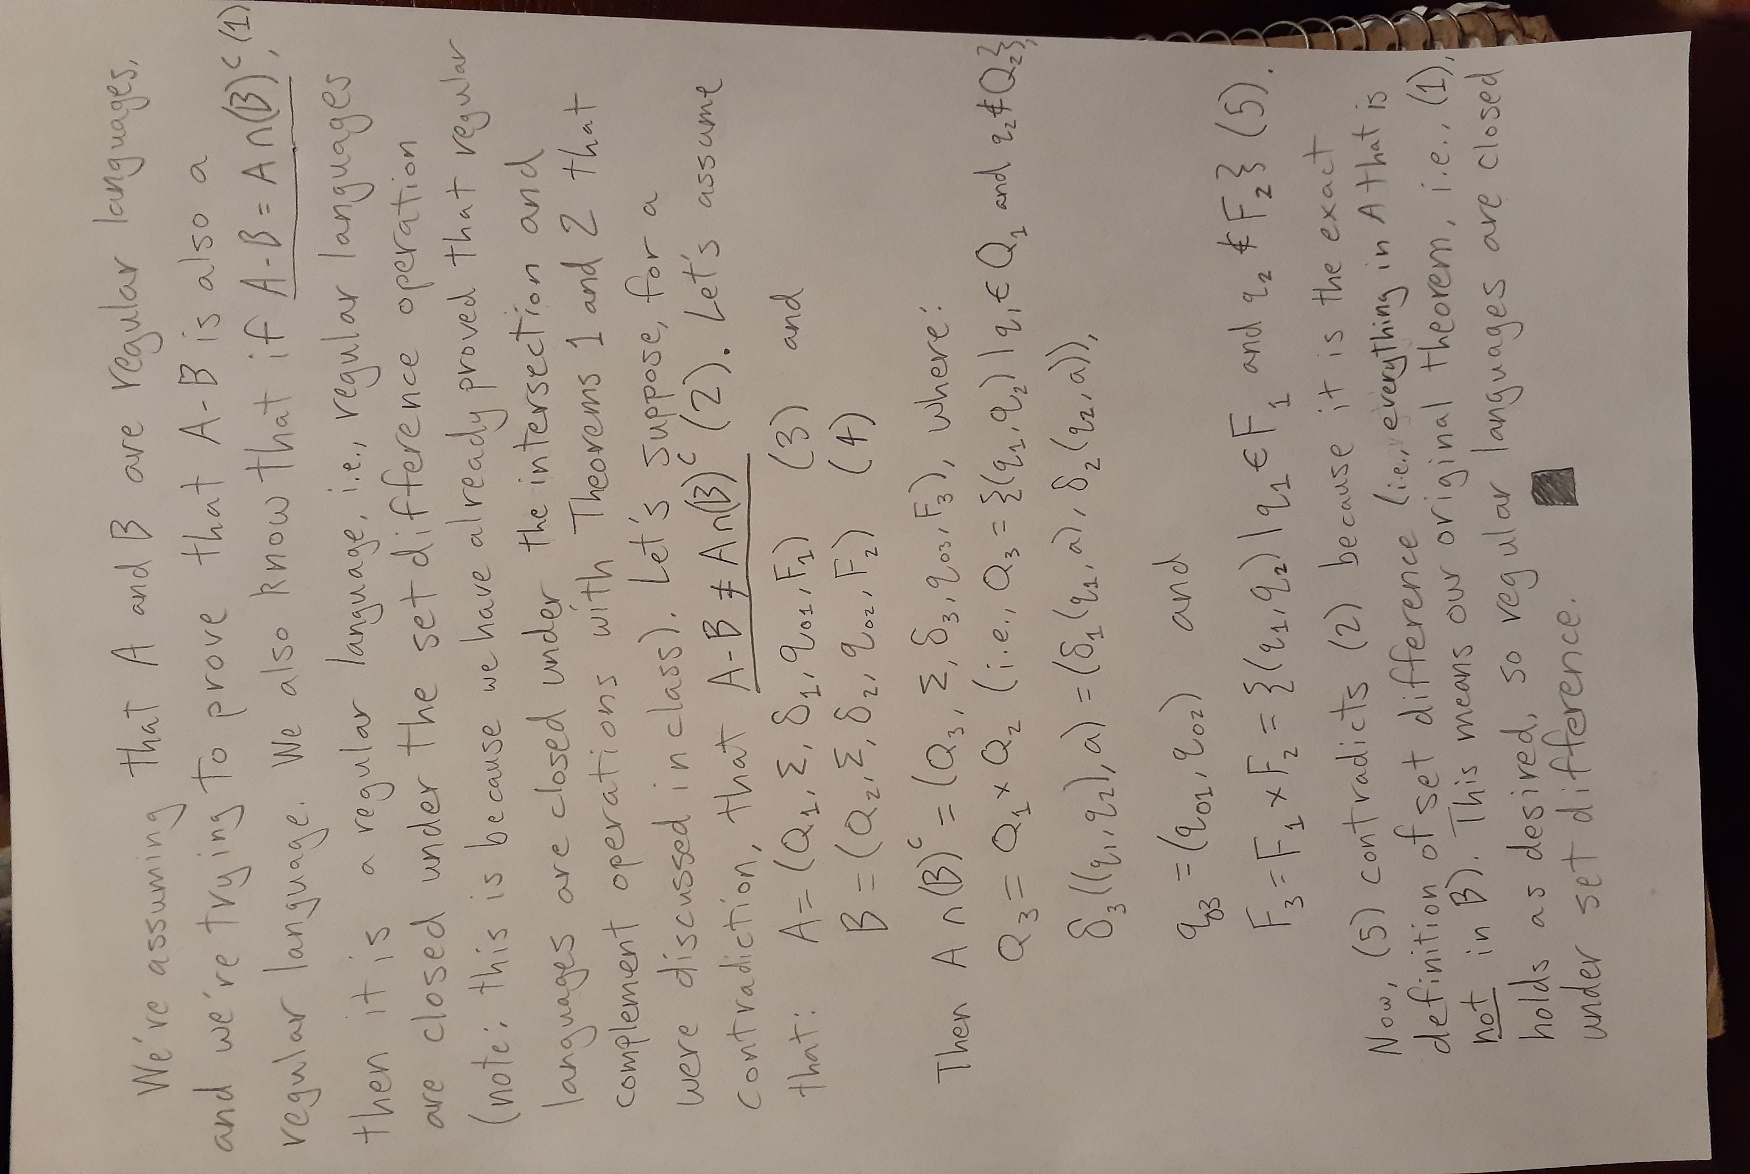 We're assuming that A and B are regular languages,
and we're trying to prove that A-B is also a
regular language. We also know that if A-B = A∩(B)ᶜ, (1)
then it is a regular language, i.e., regular languages
are closed under the set difference operation
(note: this is because we have already proved that regular
languages are closed under the intersection and
complement operations with Theorems 1 and 2 that
were discussed in class). Let's suppose, for a
contradiction, that A-B ≠ A∩(B)ᶜ (2). Let's assume
that: A = (Q₁, Σ, δ₁, q₀₁, F₁) (3) and
B = (Q₂, Σ, δ₂, q₀₂, F₂) (4)
Then A∩(B)ᶜ = (Q₃, Σ, δ₃, q₀₃, F₃), where:
Q₃ = Q₁ × Q₂ (i.e., Q₃ = {(q₁, q₂) | q₁ ∈ Q₁ and q₂ ∉ Q₂},
δ₃((q₁, q₂), a) = (δ₁(q₁, a), δ₂(q₂, a)),
q₀₃ = (q₀₁, q₀₂) and
F₃ = F₁ × F₂ = {(q₁, q₂) | q₁ ∈ F₁ and q₂ ∉ F₂} (5).
Now, (5) contradicts (2) because it is the exact
definition of set difference (i.e., everything in A that is
not in B). This means our original theorem, i.e., (1),
holds as desired, so regular languages are closed
under set difference.